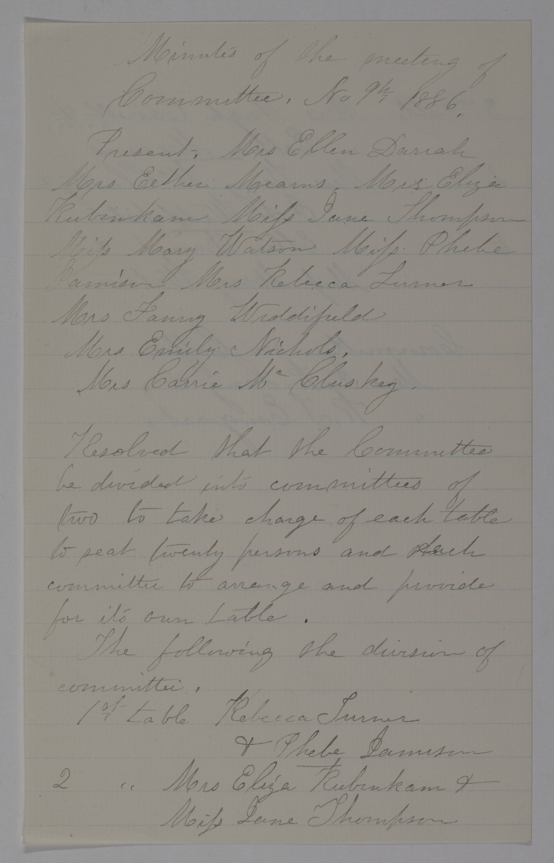 Minutes of the meeting of
Committee. No 9th 1886.
Present, Mrs Ellen Darrah
Mrs Esther Mearns, Mrs Eliza
Rubinkam Miss Jane Thompson
Miss Mary Watson Miss Phebe
Jamison, Mrs Rebecca Turner
Mrs Fanny
Mrs Emily Nichols,
Mrs Carrie Mc Cluskey.
Resolved that the Committee
be divided into committees of
two to take charge of each table
to seat twenty persons and each
committee to arrange and provide
for its own table.
The following the division of
committee.
1st table Rebecca Turner
& Phebe Jamison
2 " Mrs Eliza Rubinkam &
Miss Jane Thompson